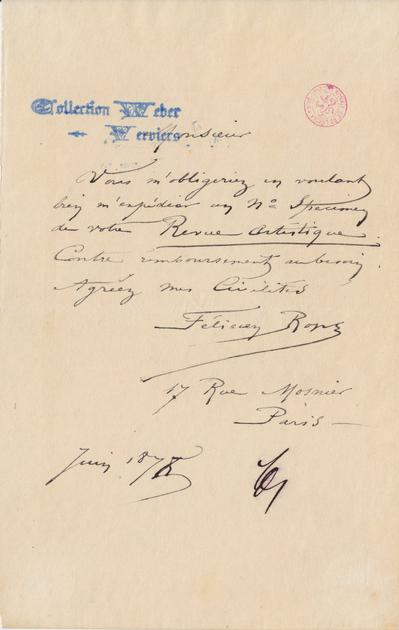 Collection Weber
Verviers
Monsieur
Vous m'obligeriez en voulant
bien m'expédier un Nº Specimen
de votre Revue Artistique.
Contre remboursement au besoin.
Agréez mes Civilités
Félicien Rops
17 Rue Mosnier
Paris —
Juin 1878